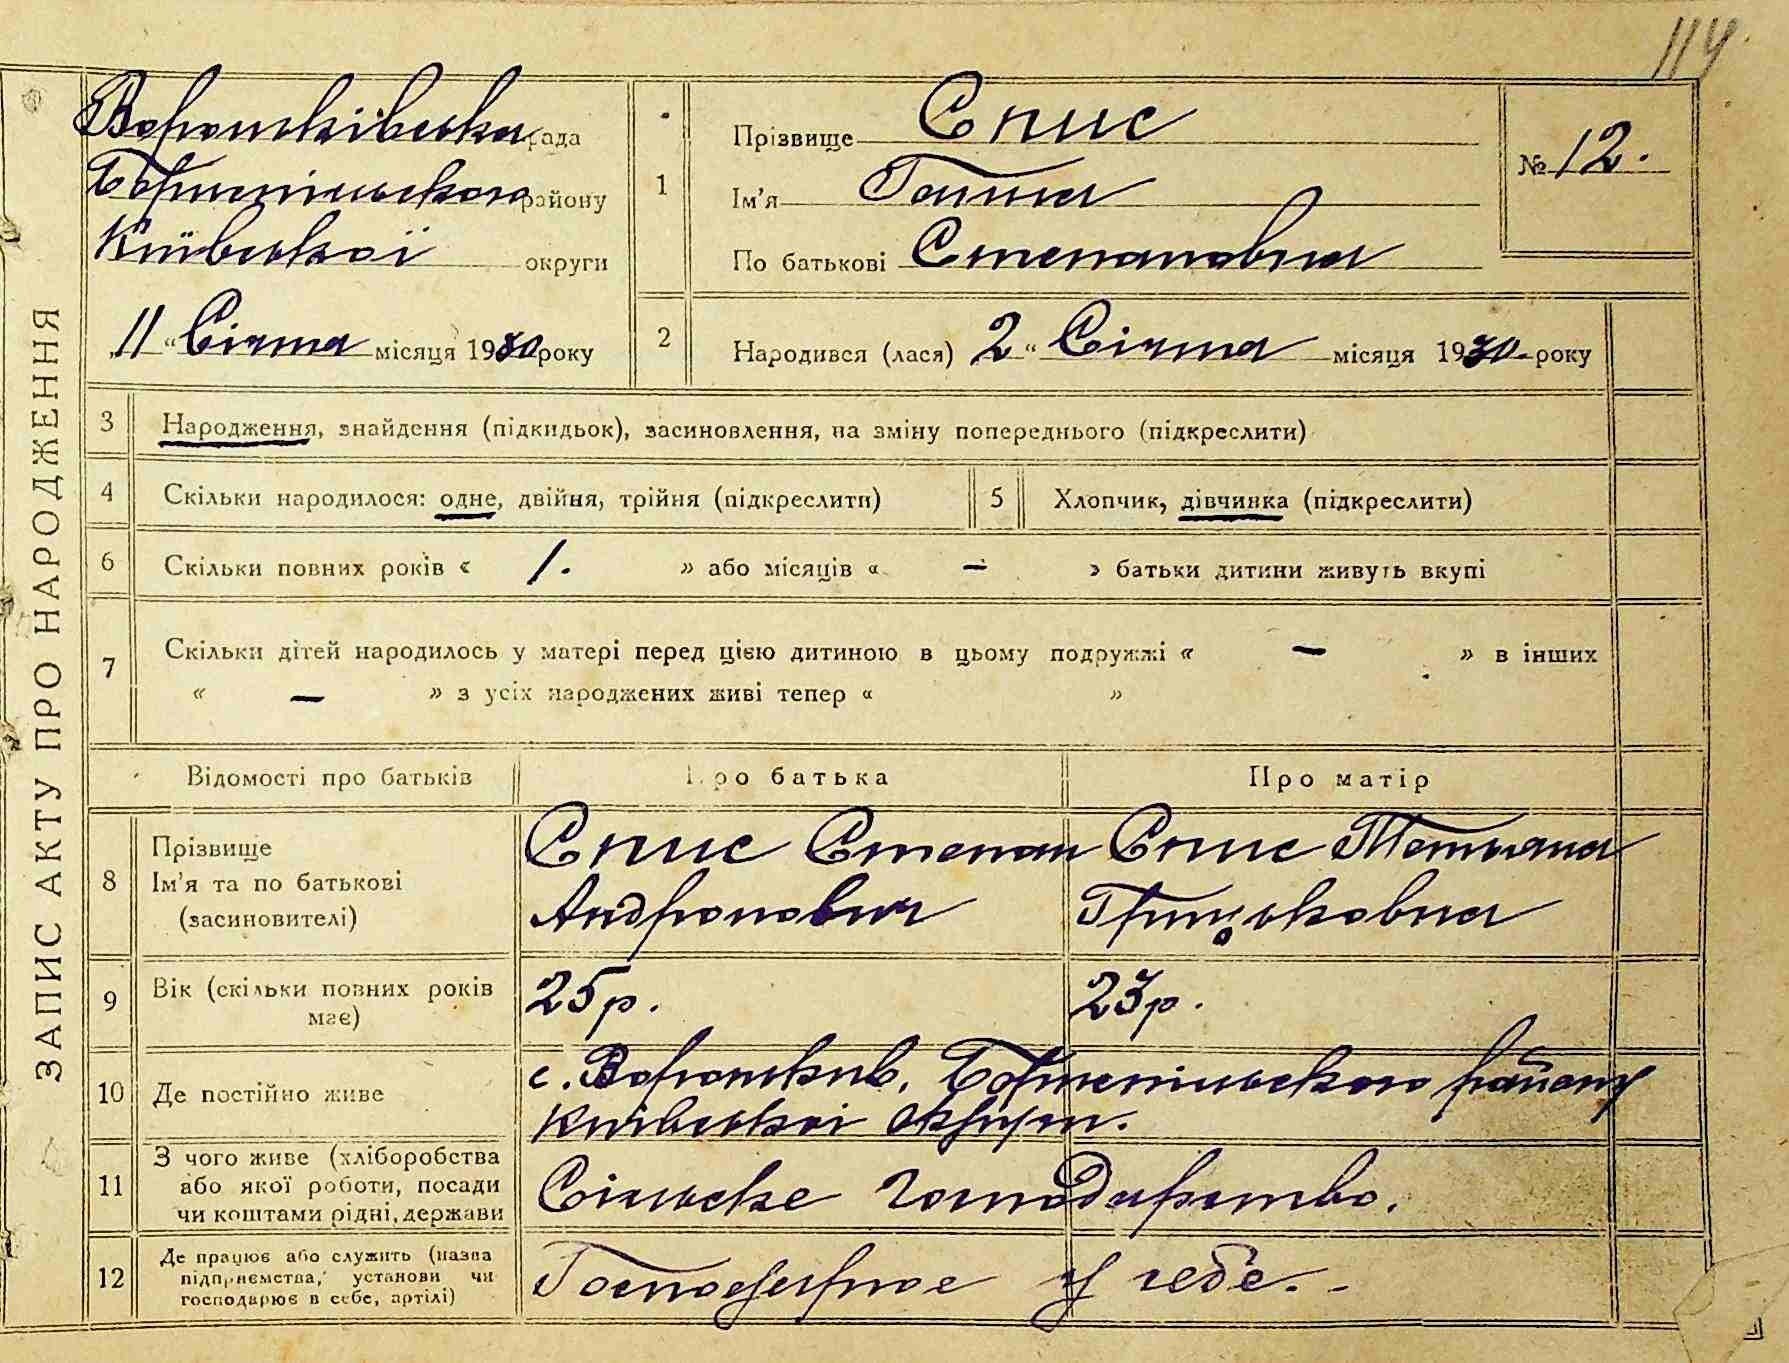 114
ЗАПИС АКТУ ПРО НАРОДЖЕННЯ
Вороньківська рада
Бориспільського району
Київської округи
„11“ Січня місяця 1930 року
1
Прізвище Спис
Ім'я Ганна
По батькові Степановна
№ 12.
2 Народився (лася) 2 “ Січня місяця 1930 року
3 Народження, знайдення (підкидьок), засиновлення, на зміну попереднього (підкреслити)
4 Скільки народилося: одне, двійня, трійня (підкреслити) 5 Хлопчик, дівчинка (підкреслити)
6 Скільки повних років « 1. » або місяців « — » батьки дитини живуть вкупі
7 Скільки дітей народилось у матері перед цією дитиною в цьому подружжі « — » в інших
« — » з усіх народжених живі тепер « »
Відомості про батьків Про батька Про матір
8 Прізвище
Ім'я та по батькові
(засиновителі)
Спис Степан
Андронович
Спис Тетьяна
Грицьковна
9 Вік (скільки повних років
має)
25 р. 23 р.
10 Де постійно живе
с. Вороньків, Бориспільського району
Київської округи.
11 З чого живе (хліборобства
або якої роботи, посади
чи коштами рідні, держави
Сільське господарство.
12 Де працює або служить (назва
підприємства, установи чи
господарює в себе, артілі)
Господарює у себе.